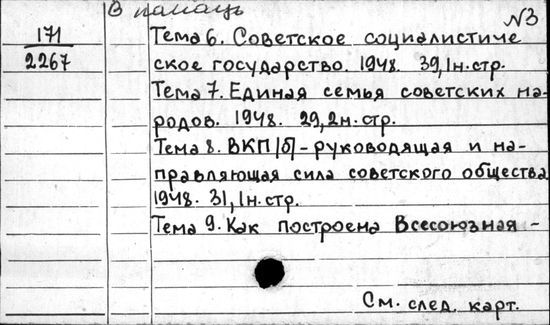 В помощь
N3
171
2267
Тема 6. Советское социалистиче
ское государство. 1948. 39,1н.стр.
Тема 7. Единая семья советских на-
родов. 1948. 29,2н.стр.
Тема 8. ВКП/б/-руководящая и на-
правляющая сила советского общества
1948. 31,1н.стр.
Тема 9. Как построена Всесоюзная -
См. след. карт.